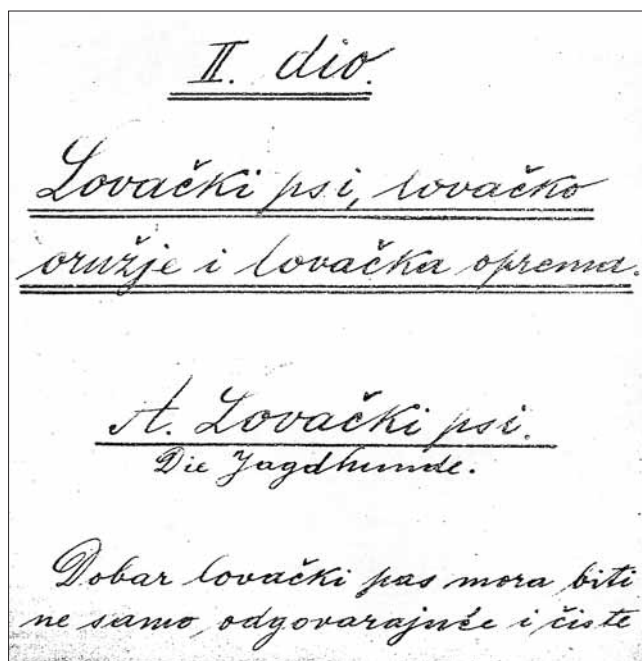 II. dio.
Lovački psi, lovačko
oružje i lovačka oprema.
A. Lovački psi.
Die Jagdhunde.
Dobar lovački pas mora biti
ne samo odgovarajuće i čiste